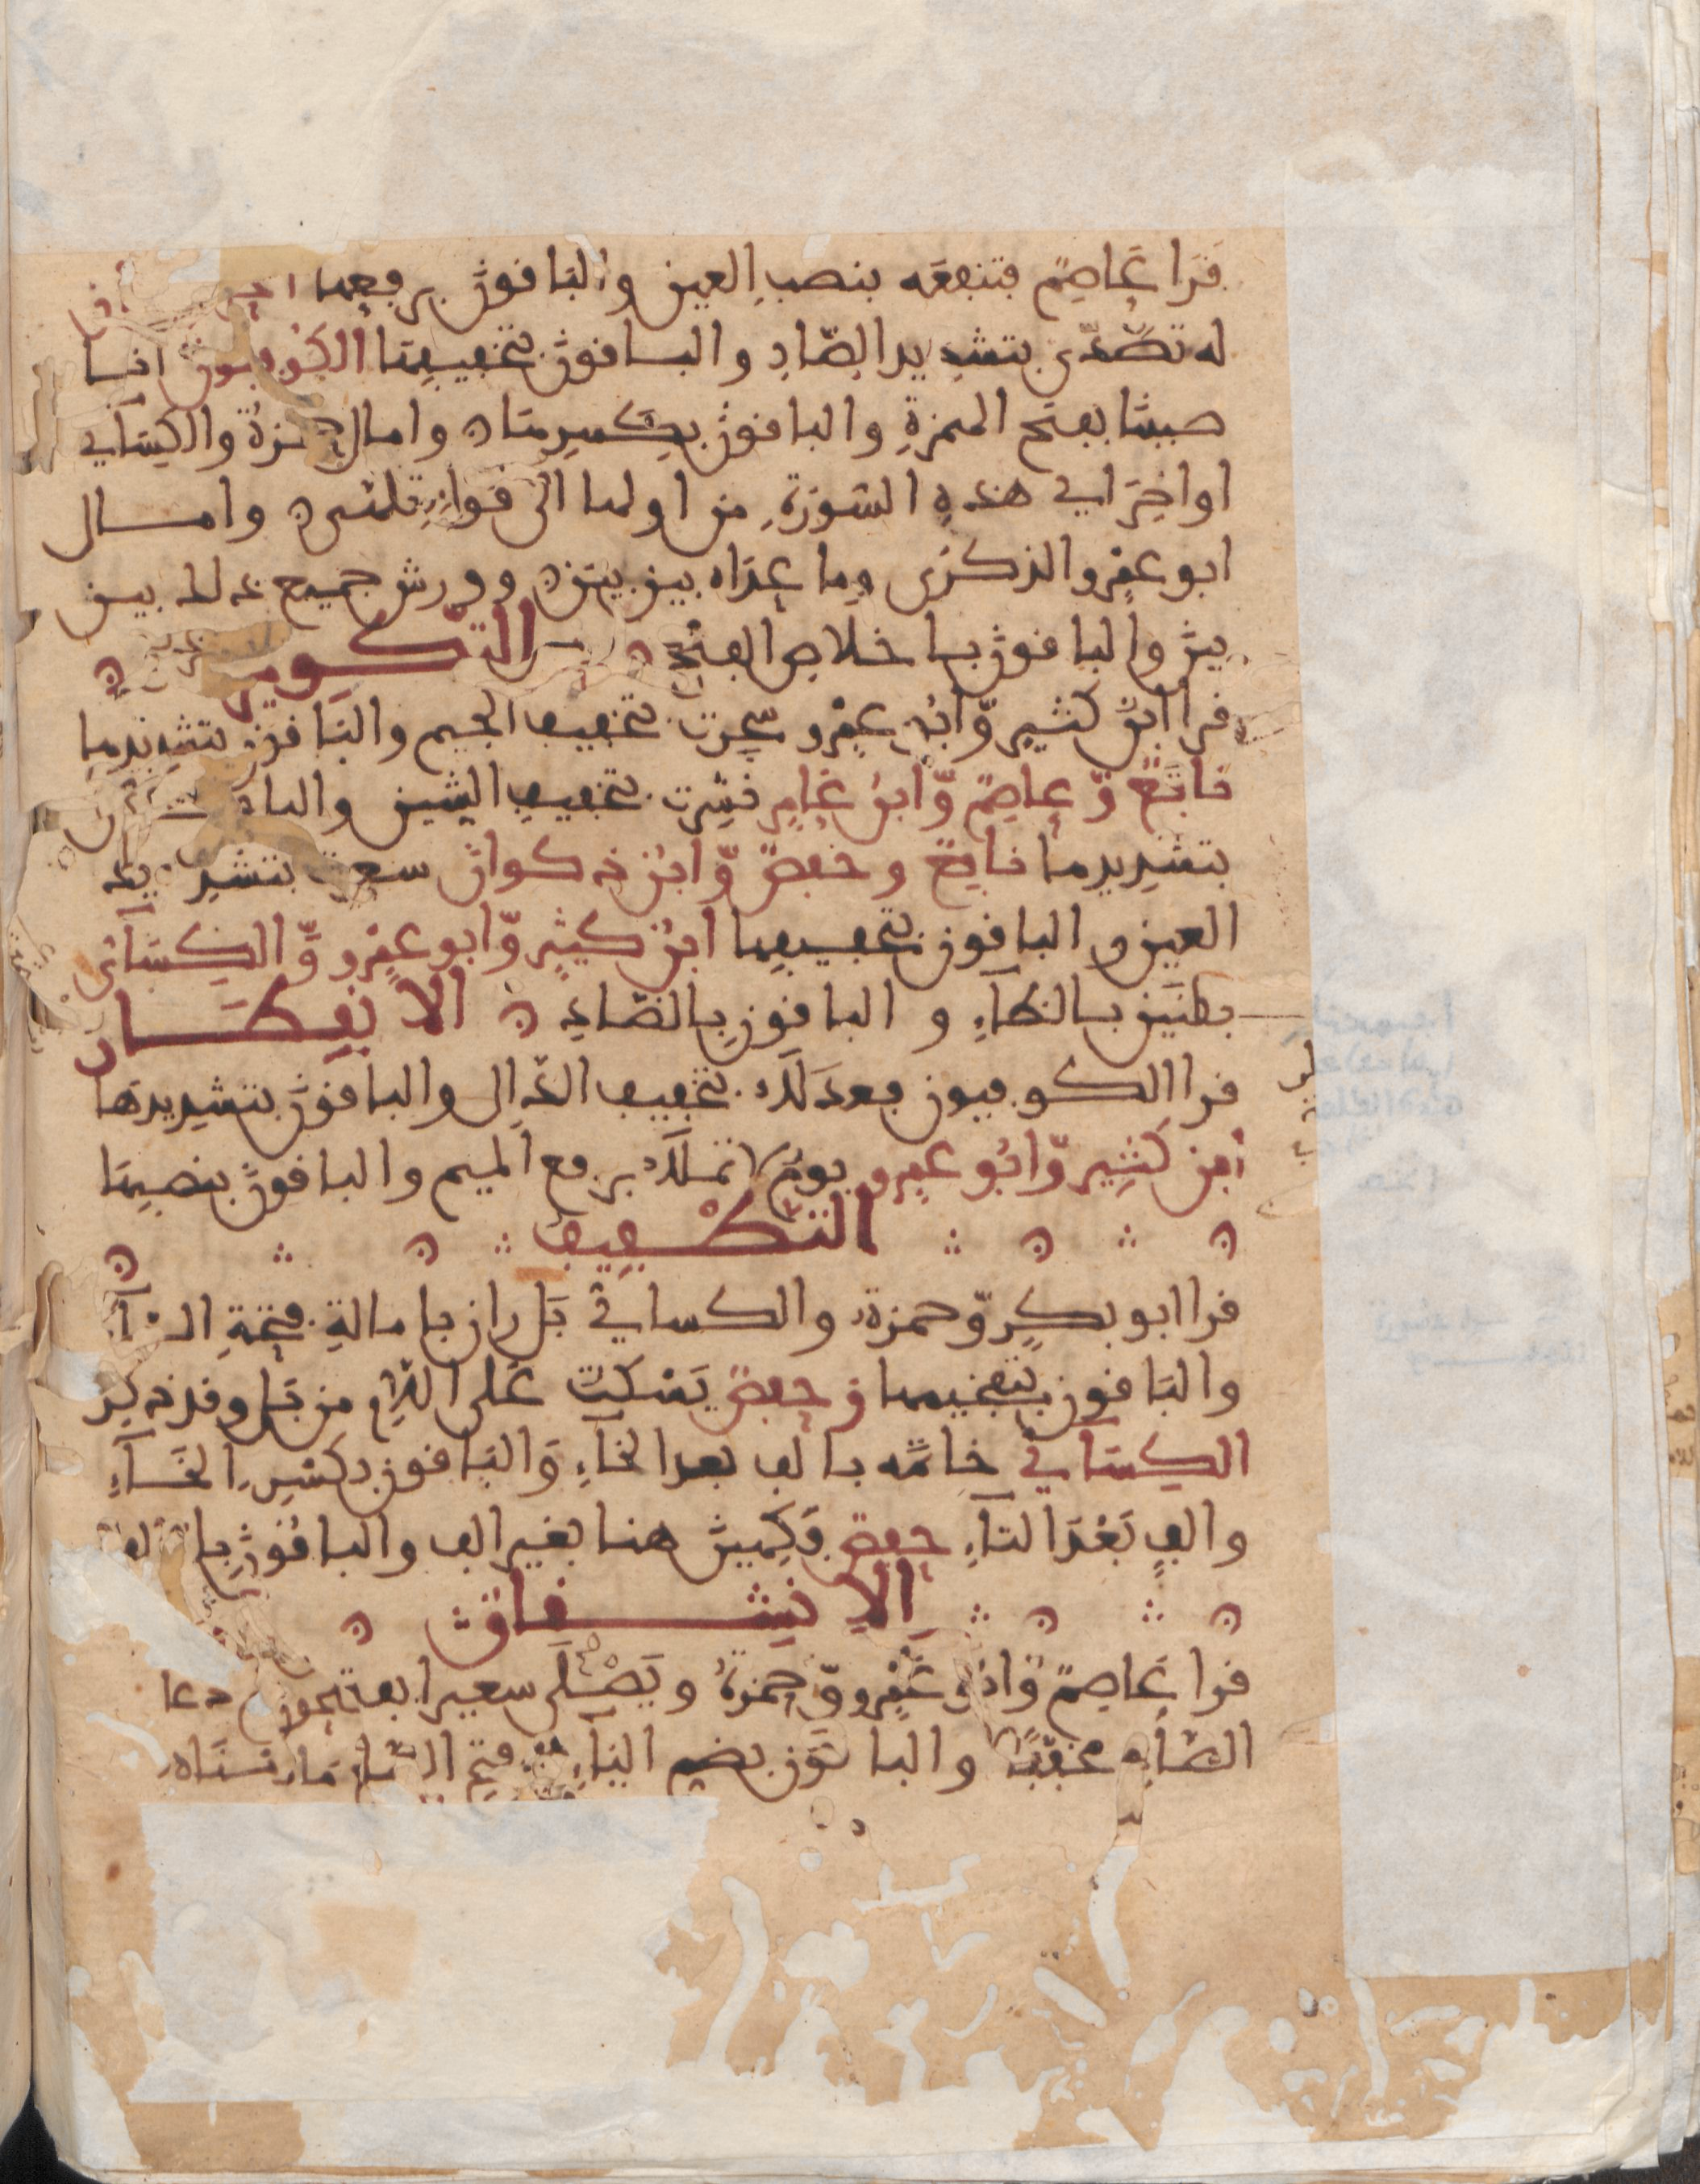 قرا عاصم فتنفعه بنصب العين والباقون برفعها
له تصدى بتشديد الصاد والباقون بتخفيفها الكوفيون انا
صببنا بفتح الهمزة والباقون بكسرها وامال حمزة والكسائي
اواخر اي هذه السورة من اولها الى قوله تلهى وامال
ابو عمرو الذكرى وما عداه بين بين وورش جميع ذلك بين
بين والباقون باخلاص الفتح التكوير
قرا ابن كثير وابو عمرو سجرت بتخفيف الجيم والباقون بتشديدها
نافع وعاصم وابن عامر نشرت بتخفيف الشين والباقون
بتشديدها نافع وحفص وابن ذكوان سعرت بتشديد
العين والباقون بتخفيفها ابن كثير وابو عمرو والكسائي
بظنين بالظاء والباقون بالضاد الانفطار
قرا الكوفيون فعدلك بتخفيف الدال والباقون بتشديدها
ابن كثير وابو عمرو يوم لا تملك برفع الميم والباقون بنصبها
التطفيف
قرا ابو بكر وحمزة والكسائي بل ران بامالة فتحة الرا
والباقون بتفخيمها وحفص يسكت على اللام من بل وقد ذكر
الكسائي خاتمه بالف بعد الخاء والباقون بكسر الخاء
والف بعد التاء حفص فكهين هنا بغير الف والباقون بالف
الانشقاق
قرا عاصم وابو عمرو وحمزة ويصلى سعيرا بفتح
الصاد مخففا والباقون بضم الياء وفتح الصاد